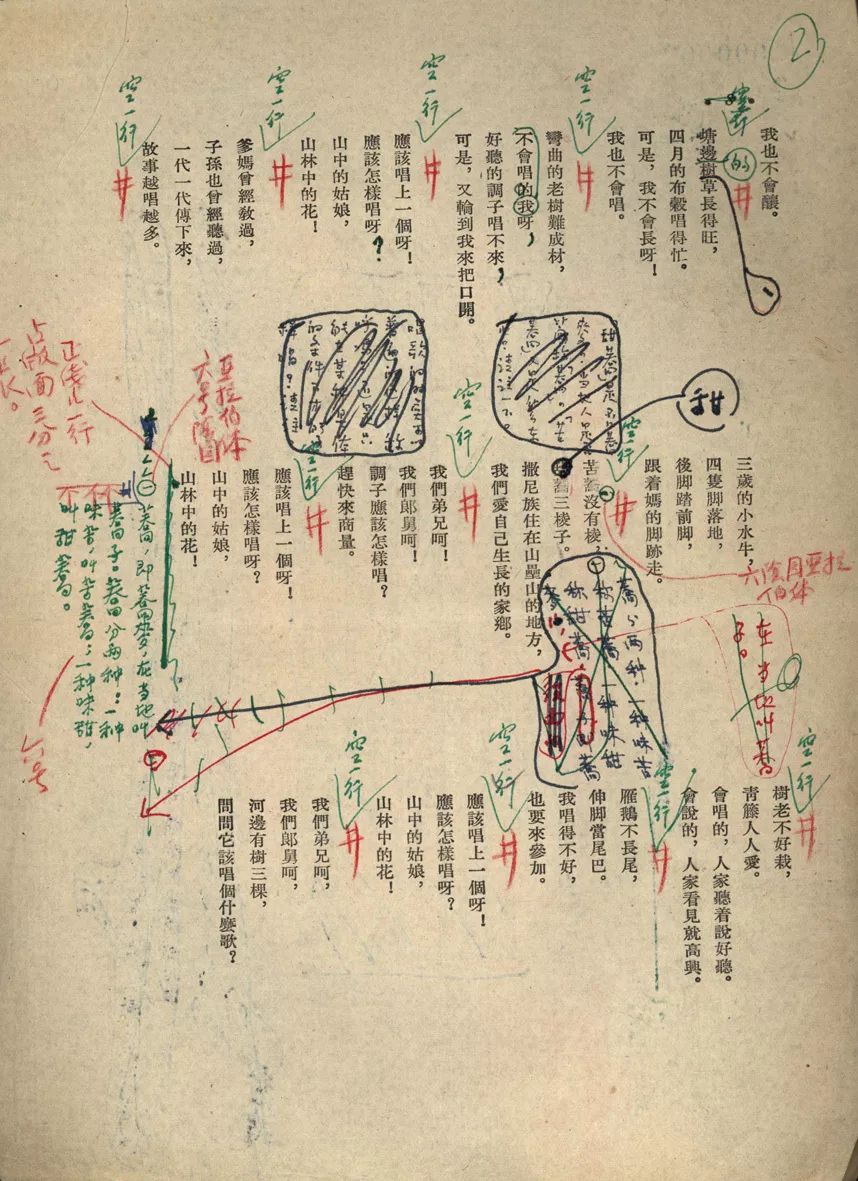 2
我也不會釀。
塘邊樹草長得旺，
的
四月的布穀唱得忙。
可是，我不會長呀！
我也不會唱。
空一行
彎曲的老樹難成材，
不會唱的我呀，
好聽的調子唱不來，
可是，又輪到我來把口開。
空一行
應該唱上一個呀！
應該怎樣唱呀？
山中的姑娘，
山林中的花！
空一行
爹媽曾經教過，
子孫也曾經聽過，
一代一代傳下來，
故事越唱越多。
空一行
三歲的小水牛，
四隻脚落地，
後脚踏前脚，
跟着媽的脚跡走。
空一行
苦蕎沒有棱，
甜
蕎三棱子。
撒尼族住在山壘山的地方，
我們愛自己生長的家鄉。
空一行
我們弟兄呵！
我們郎舅呵！
調子應該怎樣唱？
趕快來商量。
空一行
應該唱上一個呀！
應該怎樣唱呀？
山中的姑娘，
山林中的花！
六陰圈亞拉伯体
在当地叫蕎子。
蕎分两种：一种味苦
称苦蕎，一种味甜
称甜蕎
亞拉伯体
六号陰圈
正线止一行
占版面三分之一長。
㊀蕎，即蕎麥，在当地叫
蕎子。蕎分两种：一种
味苦，叫苦蕎；一种味甜，
叫甜蕎。
六号
空一行
樹老不好栽，
靑籐人人愛。
會唱的，人家聽着說好聽。
會說的，人家看見就高興。
空一行
雁鵝不長尾，
伸脚當尾巴。
我唱得不好，
也要來參加。
空一行
應該唱上一個呀！
應該怎樣唱呀？
山中的姑娘，
山林中的花！
空一行
我們弟兄呵，
我們郎舅呵，
河邊有樹三棵，
問問它該唱個什麽歌？